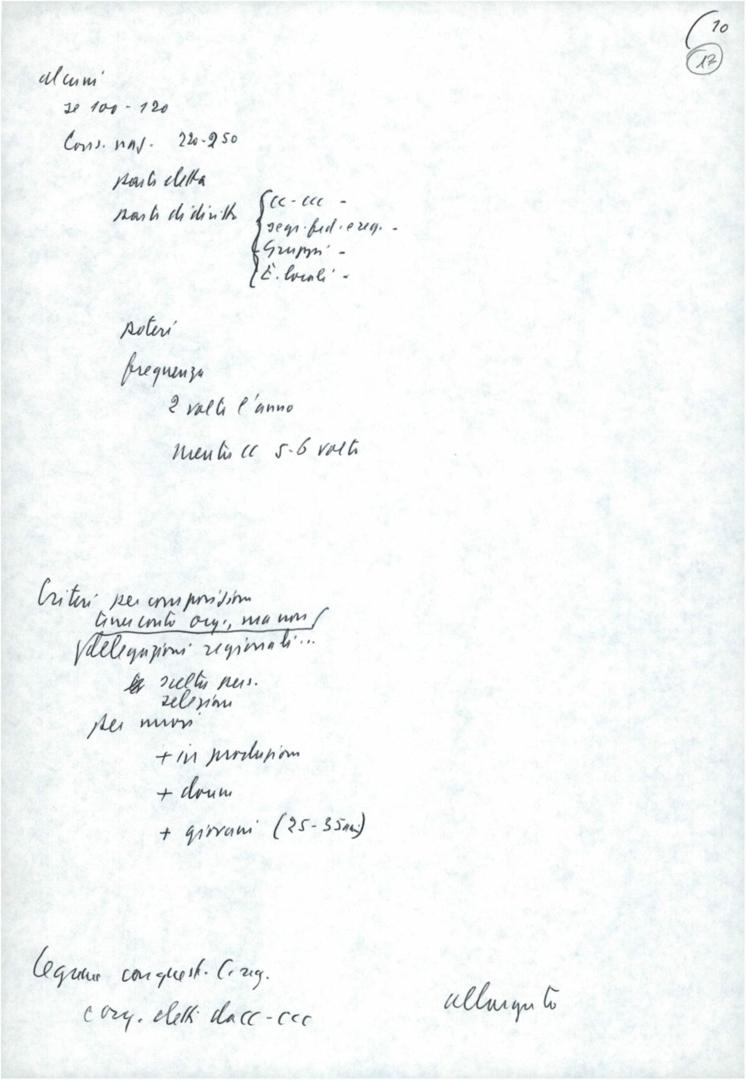 10
17
alcuni
se 100-120
Cons. naz. 220-250
parte eletta
parte di diritto
cc-ccc -
segr. fed. e reg. -
Gruppi -
E. locali -
poteri
frequenza
2 volte l'anno
mentre cc 5-6 volte
Criteri per composizione
tener conto org., ma non
delegazioni regionali...
scelta pers.
selezione
per nuovi
+ in produzione
+ donne
+ giovani (25-35 anni)
Legame con quest. C. reg.
c org. eletti da cc-ccc
allargato